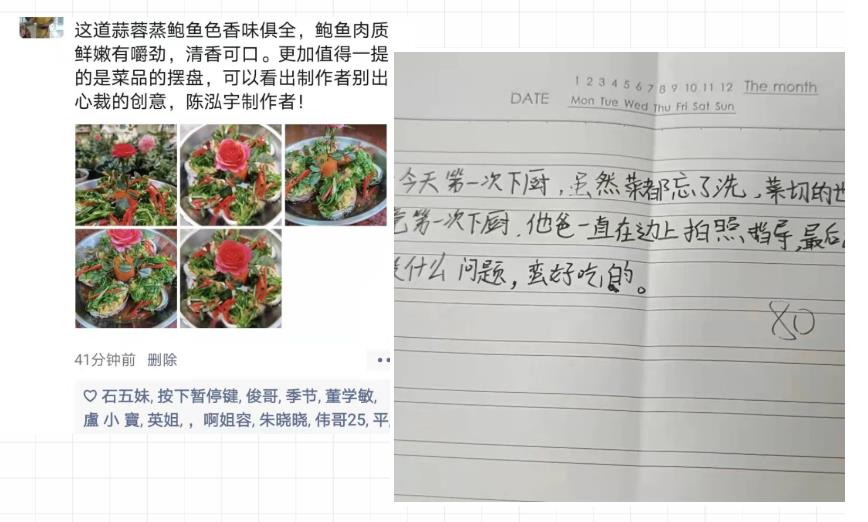 这道蒜蓉蒸鲍鱼色香味俱全，鲍鱼肉质
鲜嫩有嚼劲，清香可口。更加值得一提
的是菜品的摆盘，可以看出制作者别出
心裁的创意，陈泓宇制作者！
41分钟前 删除
石五妹, 按下暂停键, 俊哥, 季节, 董学敏,
盧 小 寶, 英姐, ，啊姐容, 朱晓晓, 伟哥25, 平,
1 2 3 4 5 6 7 8 9 10 11 12 The month
DATE Mon Tue Wed Thu Fri Sat Sun
今天第一次下厨，虽然菜都忘了洗，菜切的也
竟第一次下厨，他爸一直在边上拍照指导，最后
什么问题，蛮好吃的。
80